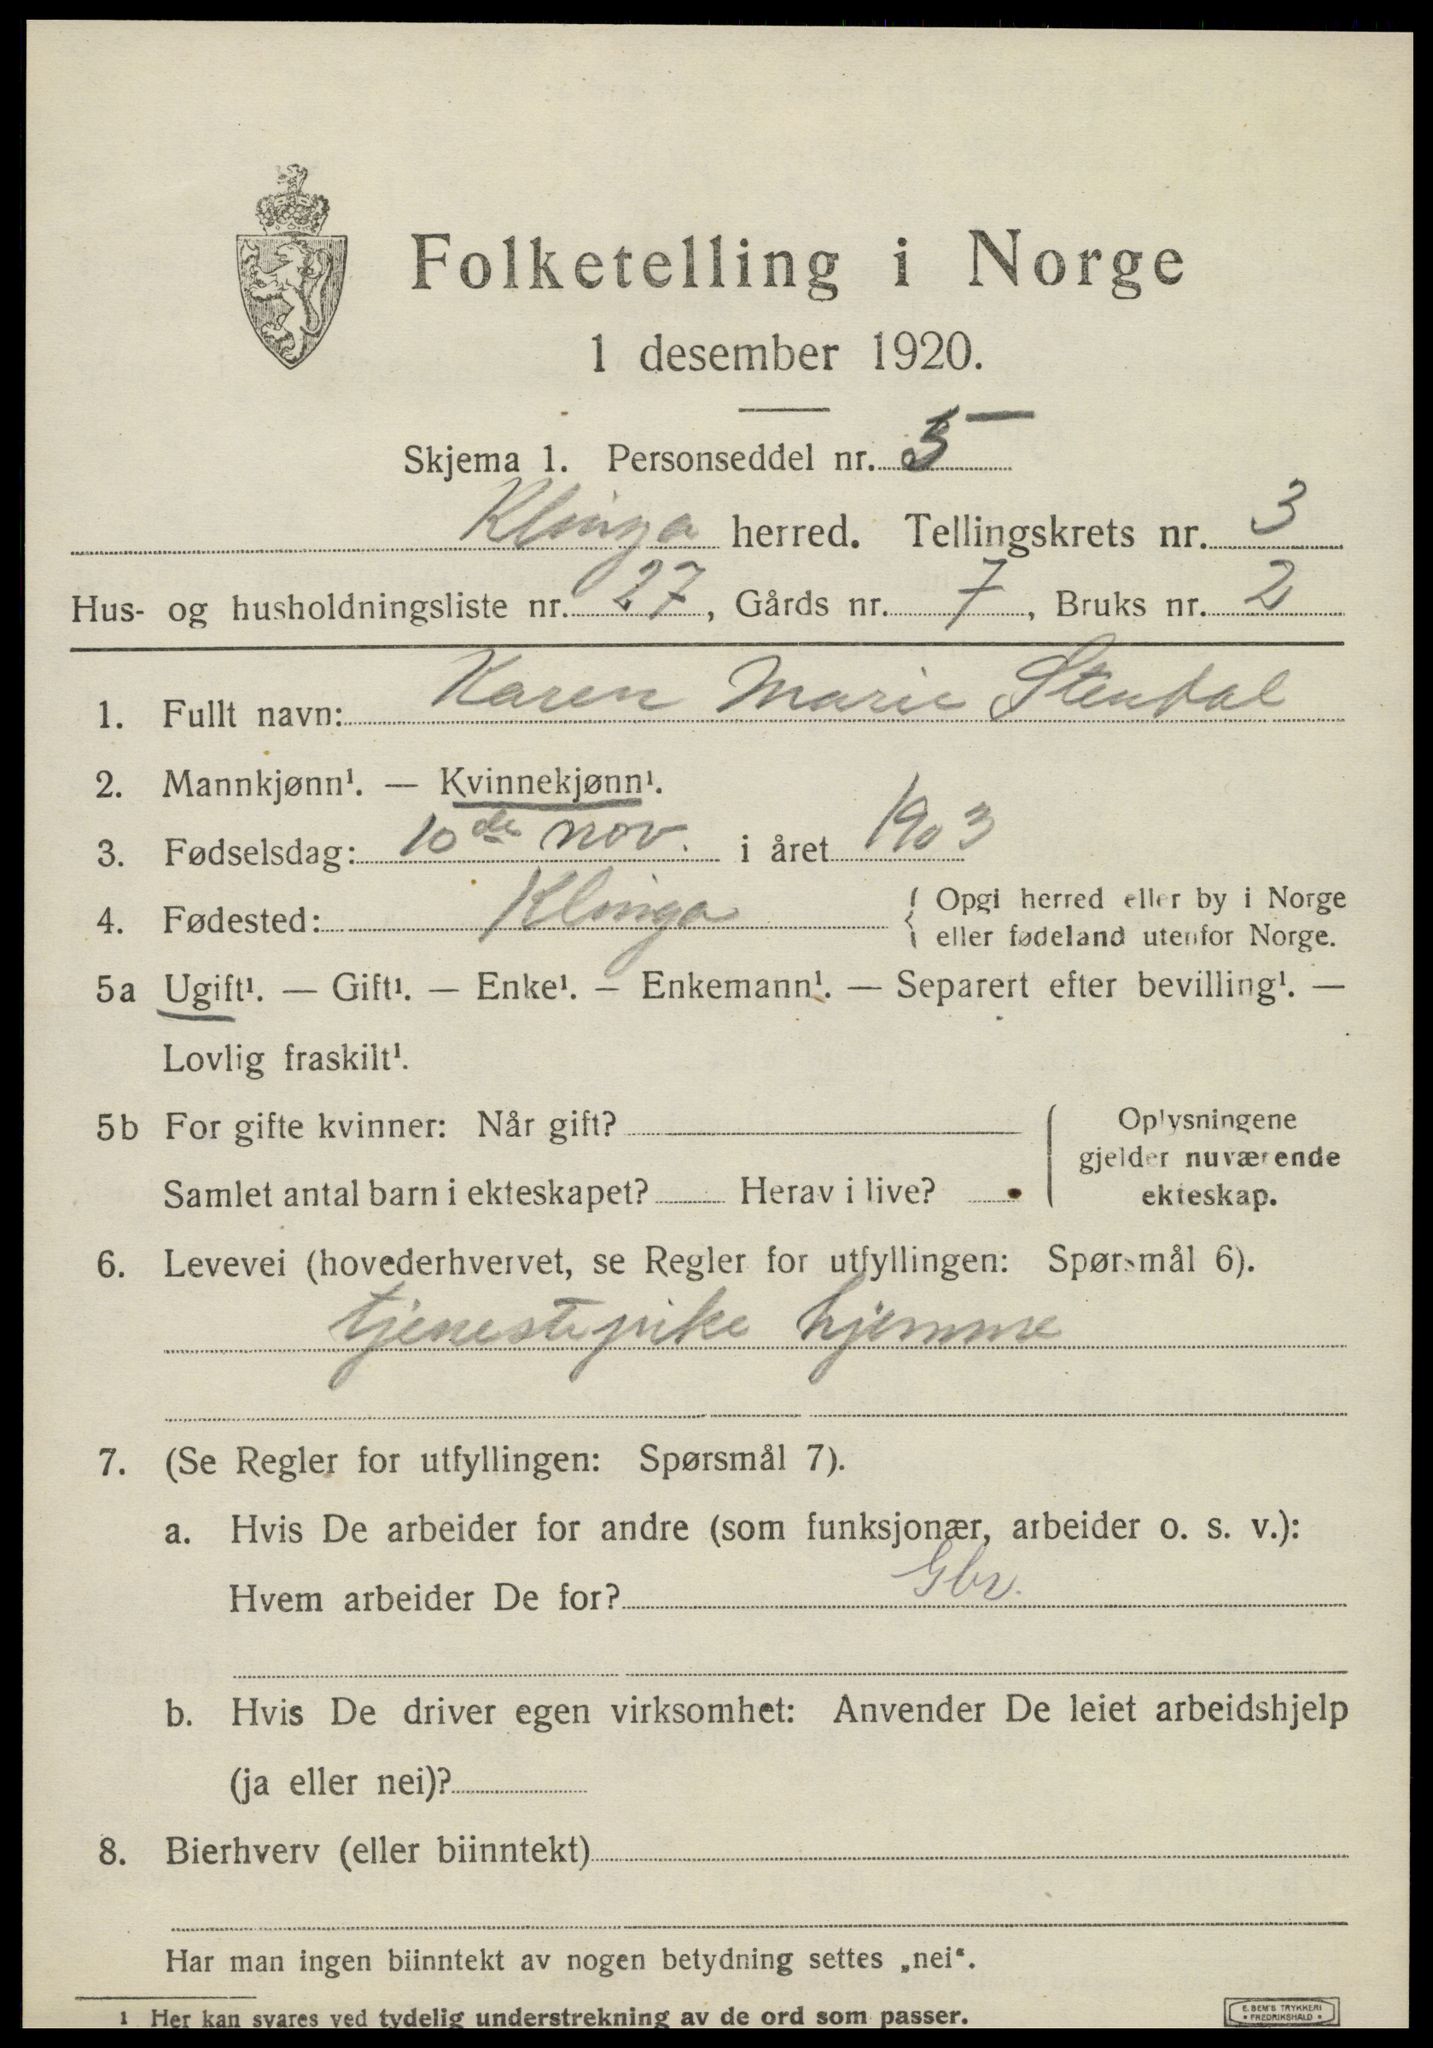 Folketelling i Norge
1 desember 1920.
Skjema 1. Personseddel nr. 5
Klinga herred. Tellingskrets nr. 3
Hus- og husholdningsliste nr. 27, Gårds nr. 7, Bruks nr. 2
1. Fullt navn: Karen Marie Stendal
2. Mannkjønn¹. — Kvinnekjønn¹.
3. Fødselsdag: 10de nov. i året 1903
4. Fødested: Klinga { Opgi herred eller by i Norge
eller fødeland utenfor Norge.
5a Ugift¹. — Gift¹. — Enke¹. — Enkemann¹. — Separert efter bevilling¹. —
Lovlig fraskilt¹.
5b For gifte kvinner: Når gift?
Samlet antal barn i ekteskapet? Herav i live?
Oplysningene
gjelder nuværende
ekteskap.
6. Levevei (hovederhvervet, se Regler for utfyllingen: Spørsmål 6).
tjenestepike hjemme
7. (Se Regler for utfyllingen: Spørsmål 7).
a. Hvis De arbeider for andre (som funksjonær, arbeider o. s. v.):
Hvem arbeider De for? Gbr.
b. Hvis De driver egen virksomhet: Anvender De leiet arbeidshjelp
(ja eller nei)?
8. Bierhverv (eller biinntekt)
Har man ingen biinntekt av nogen betydning settes „nei“.
1 Her kan svares ved tydelig understrekning av de ord som passer.
E. SEM'S TRYKKERI
* FREDRIKSHALD *